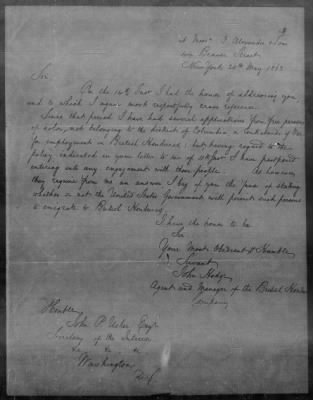 & Messrs. J. Alexander & Son
Beaver Street
New York 20th May 1863
Sir,
On the 14th Inst I had the honor of addressing you,
and to which I again most respectfully crave reference.
Since that period I have had several applications from free persons
of color, not belonging to the district of Columbia or Contrabands of War
for employment in British Honduras; but, having regard to the
policy, indicated in your letter to me of I have postponed
entering into any engagement with these people. As however
they require from me an answer I beg of you the favor of stating
whether or not the United States Government will permit such persons
to emigrate to British Honduras.
I have the honor to be
Sir
Your Most Obedient & Humble
Servant
John Hodge
Agent and Manager of the British Honduras
Company
Honble
John P. Usher Esqr
Secretary of the Interior
&c &c &c
Washington